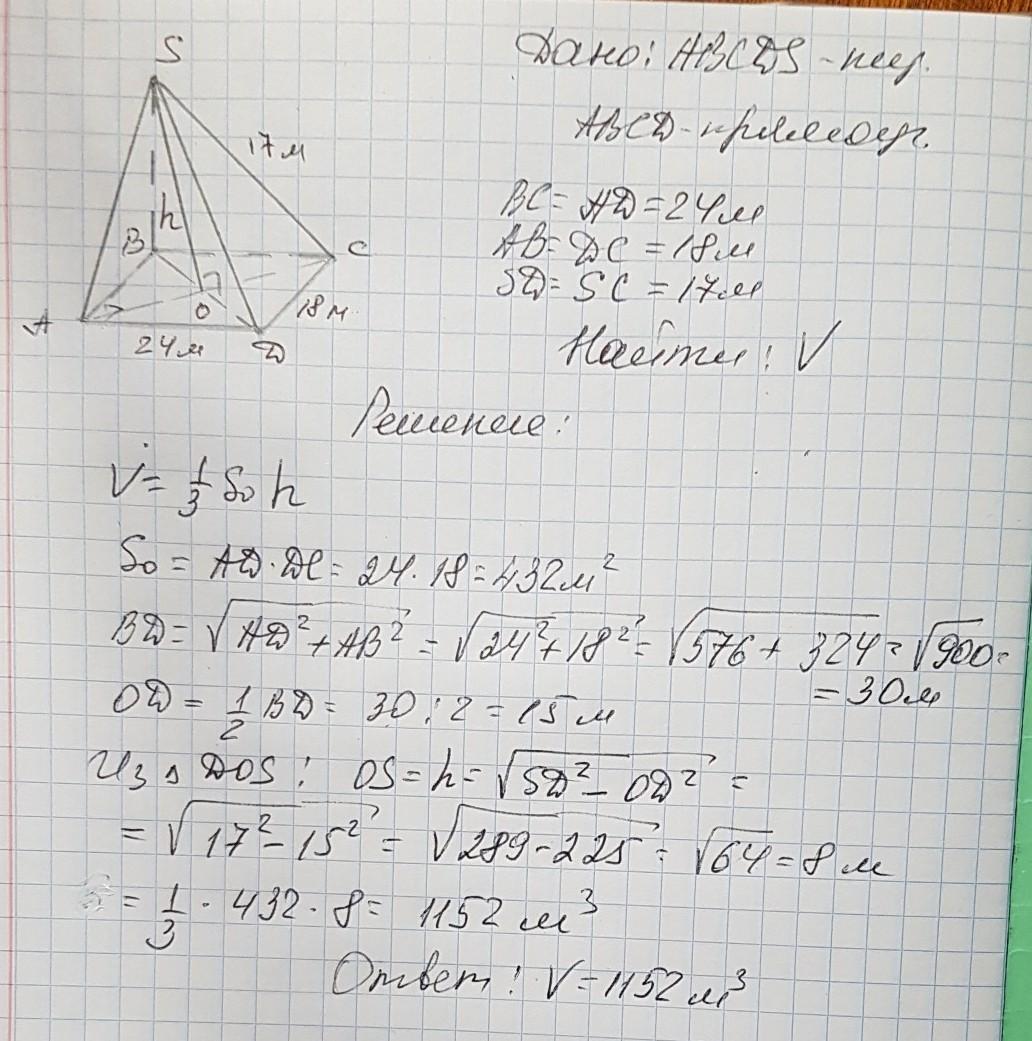 S
17 м
h
B
C
O
A
18 м
24 м
D
Дано: ABCDS - пир.
ABCD - прямоуг.
BC = AD = 24 м
AB = DC = 18 м
SD = SC = 17 м
Найти: V
Решение:
V = 1/3 S₀ h
S₀ = AD · DC = 24 · 18 = 432 м²
BD = √(AD² + AB²) = √(24² + 18²) = √(576 + 324) = √900 =
= 30 м
OD = 1/2 BD = 30 : 2 = 15 м
Из Δ DOS: OS = h = √(SD² - OD²) =
= √(17² - 15²) = √(289 - 225) = √64 = 8 м
= 1/3 · 432 · 8 = 1152 м³
Ответ: V = 1152 м³